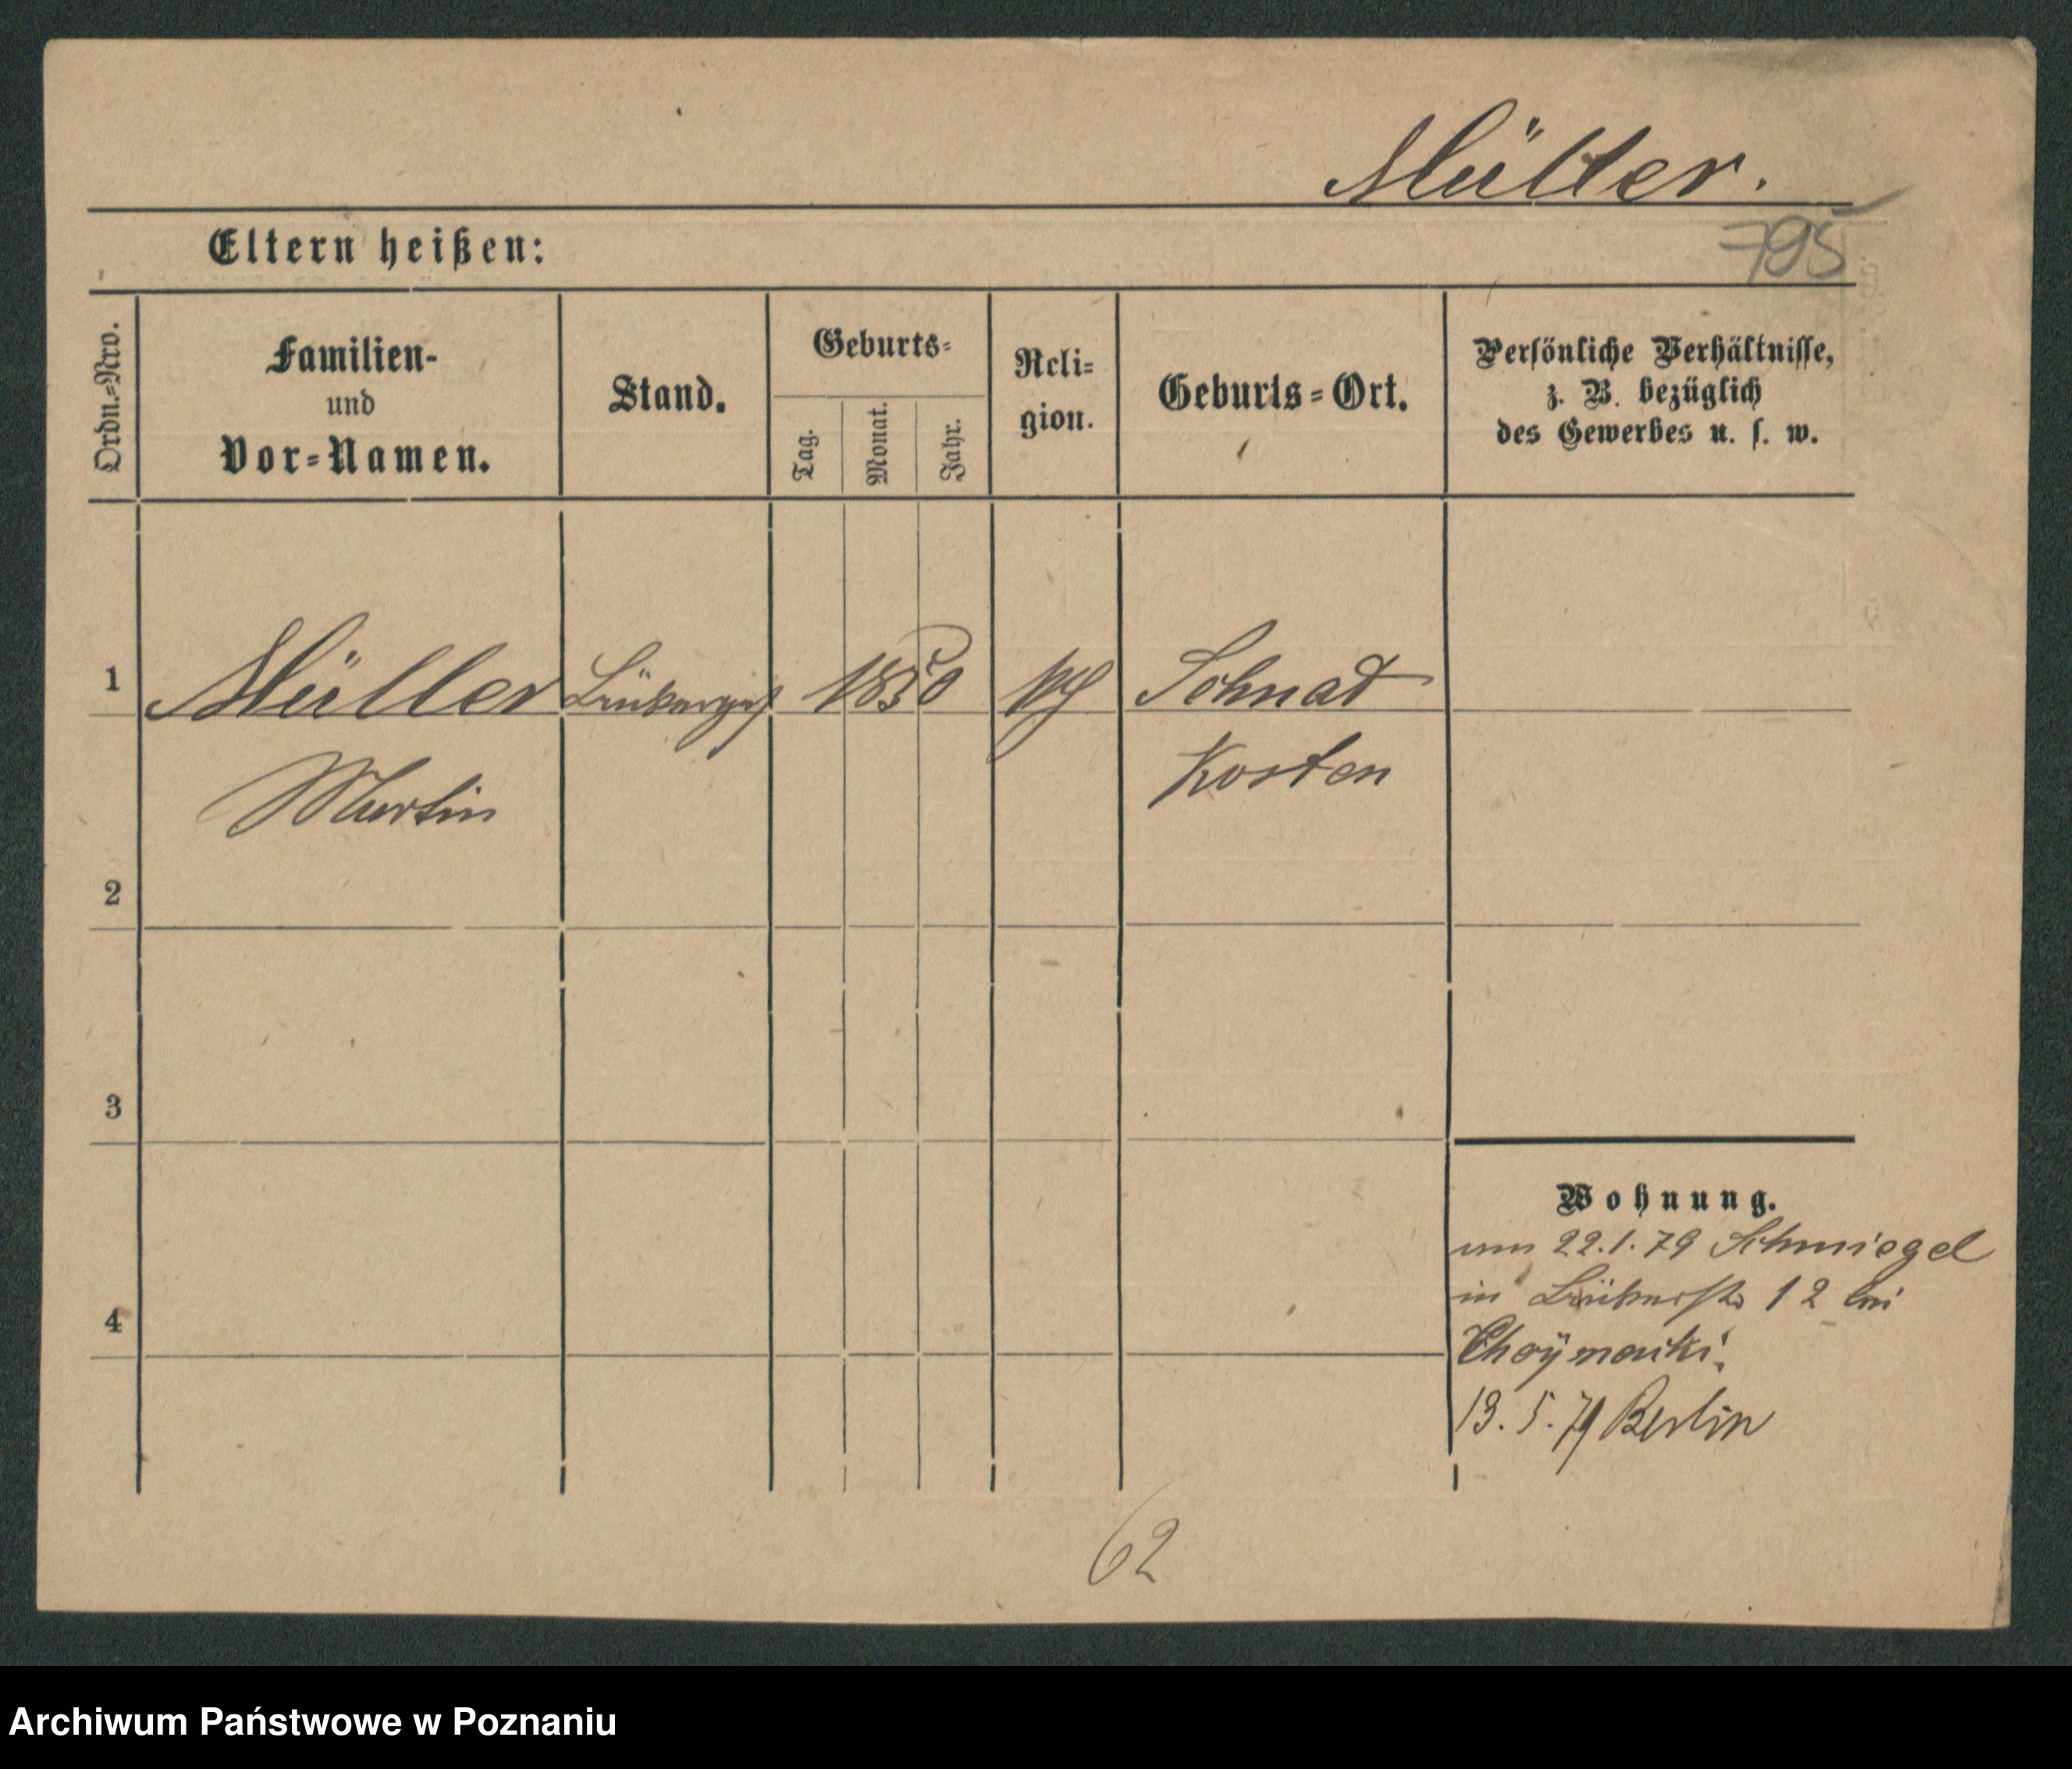 Müller.
795
Eltern heißen:
Ordn.=Nro.
Familien-
und
Vor=Namen.
Stand.
Geburts=
Tag.
Monat.
Jahr.
Reli=
gion.
Geburts=Ort.
Persönliche Verhältnisse,
z. B. bezüglich
des Gewerbes u. s. w.
1
Müller
1850
Schnad
Martin
Kosten
2
3
4
Wohnung.
22.1.79 Schmiegel
in 12 bei
13. 5. 79 Berlin
62
Archiwum Państwowe w Poznaniu